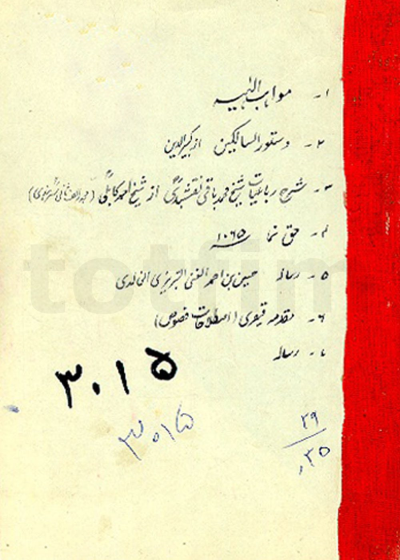 ۱- مواهب الهیه
۲- دستور السالکین از کبیرالدین
۳- شرح رباعیات شیخ محمد باقی نقشبندی از شیخ احمد کابلی (مجدد الف ثانی سرهندی)
۴- حق نما ۱۰۶۵
۵- رساله حسین بن احمد الغنی التبریزی الخالدی
۶- مقدمه قیصری (اصطلاحات فصوص)
۷- رساله
۳۰۱۵
۳۰۱۵
۲۹
۳۵